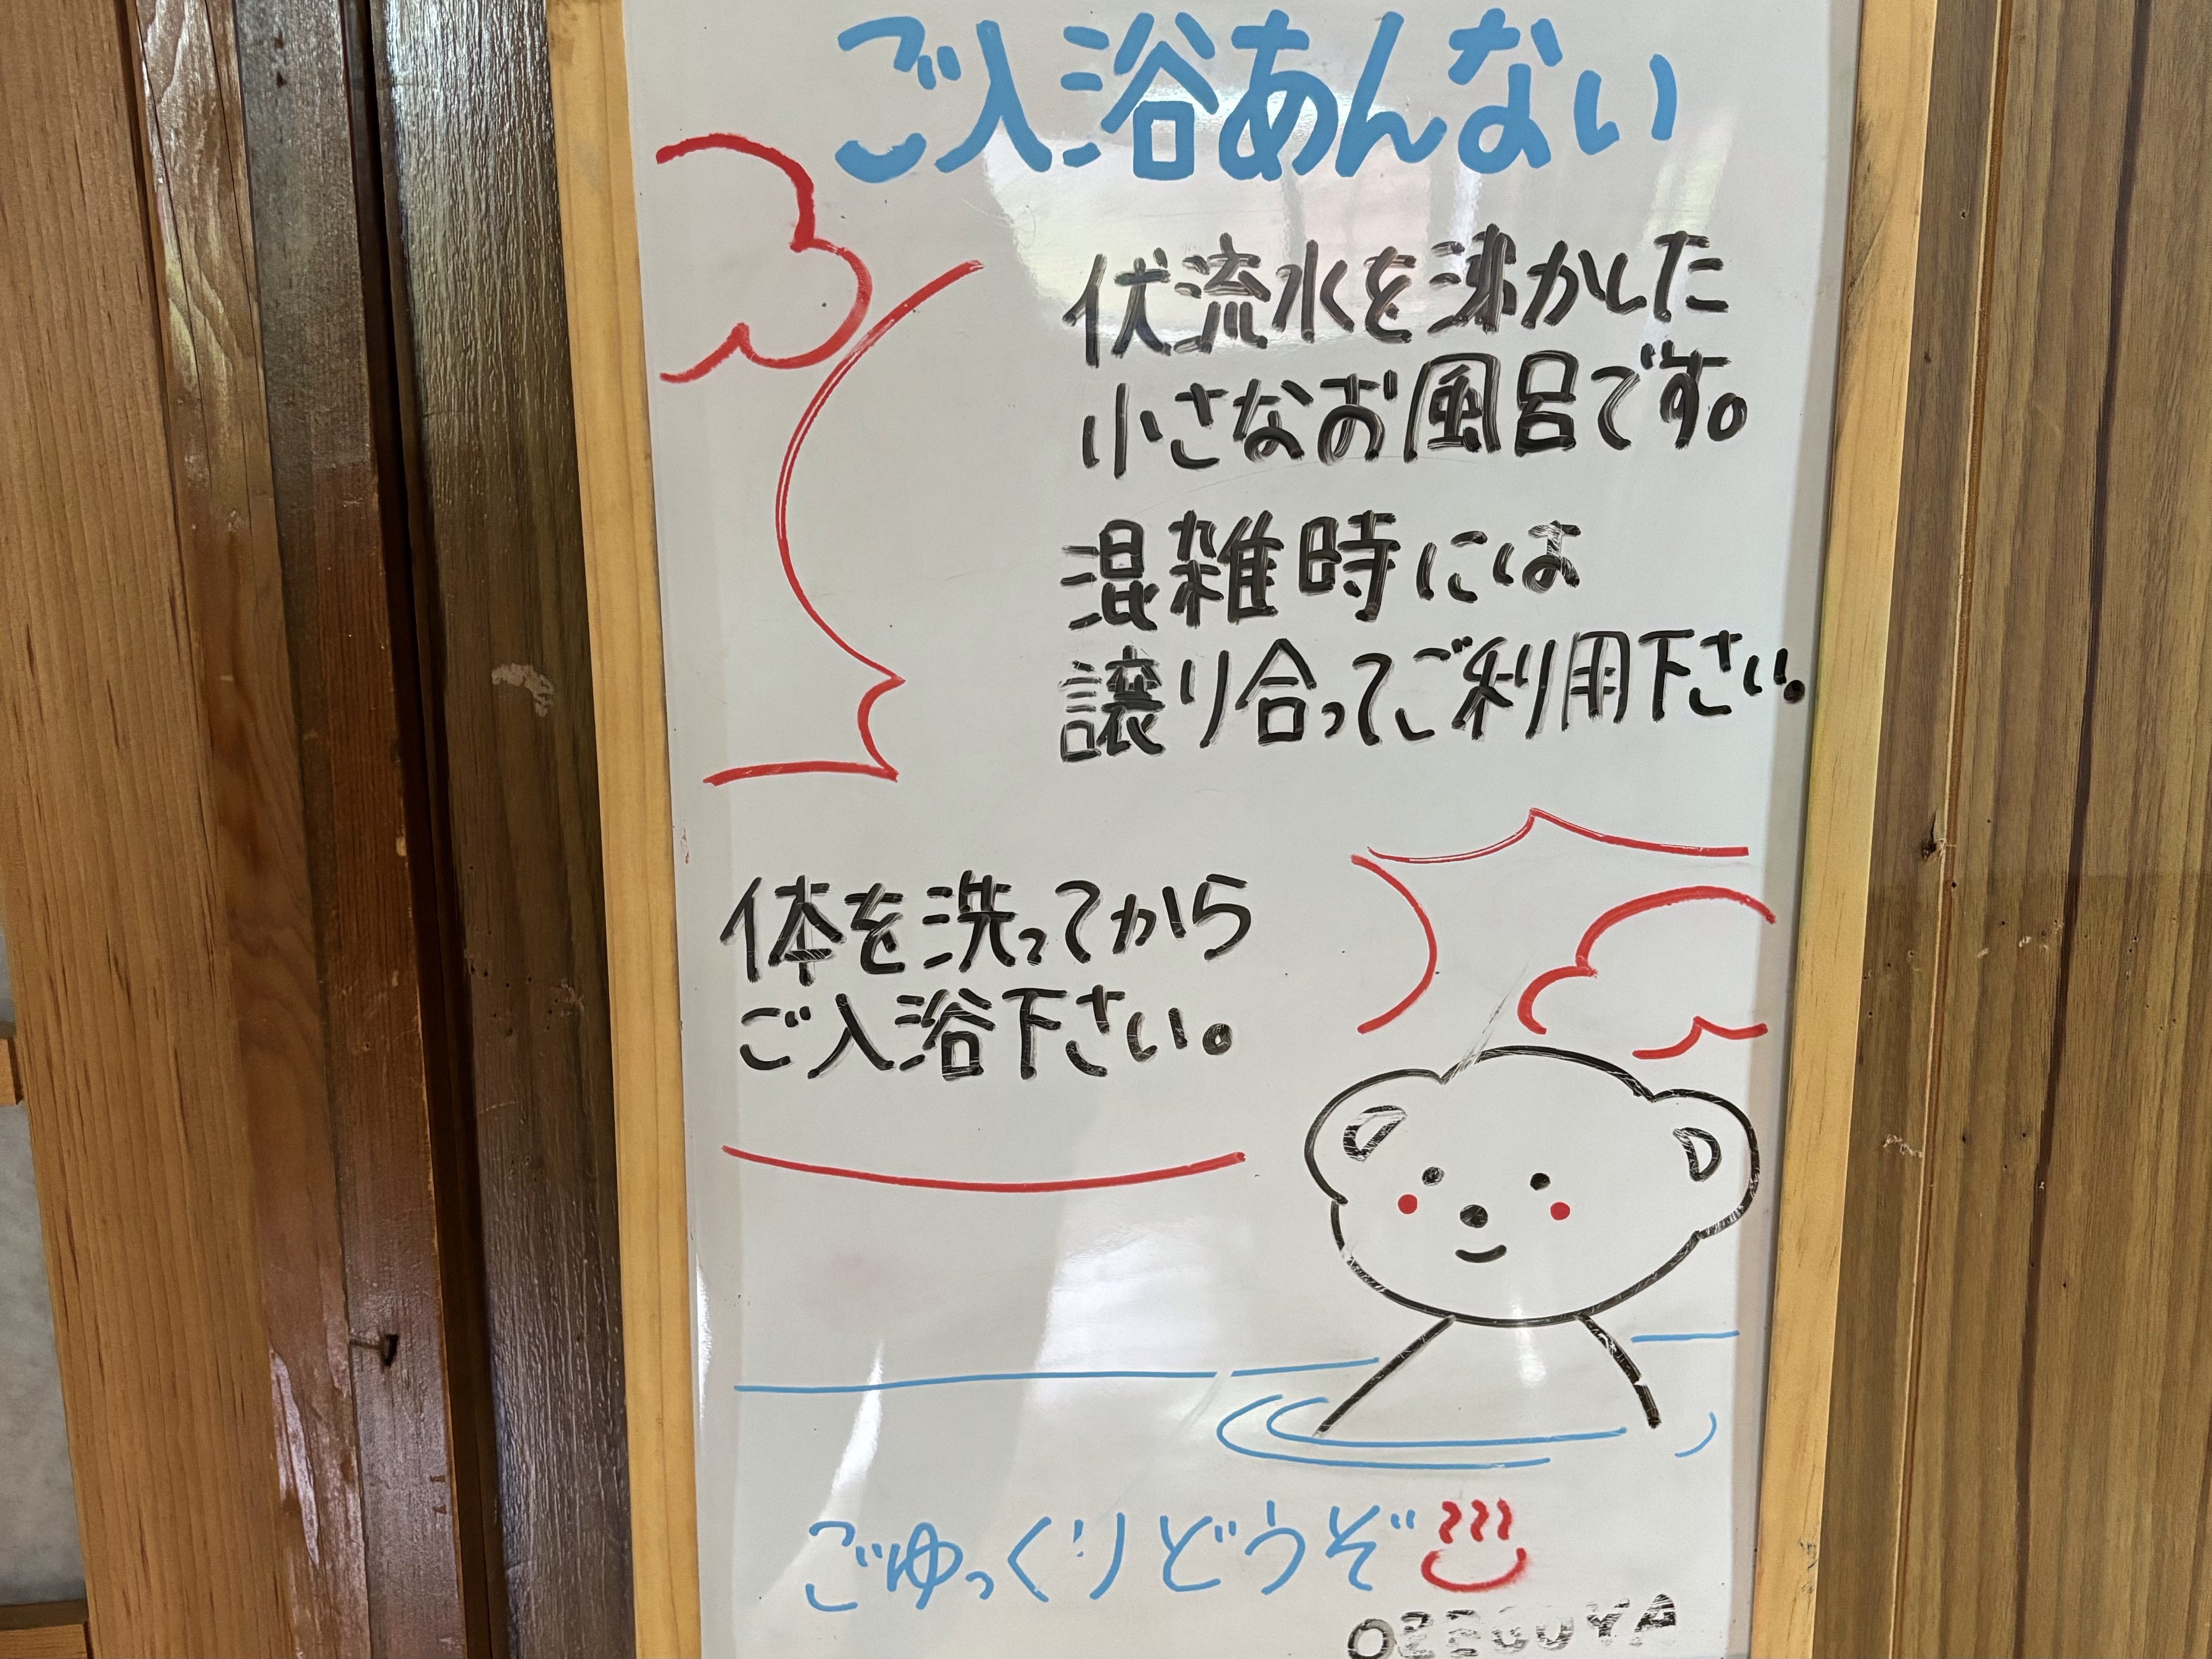 ご入浴あんない
伏流水を沸かした
小さなお風呂です。
混雑時には
譲り合ってご利用下さい。
体を洗ってから
ご入浴下さい。
ごゆっくりどうぞ♨
OZEGOYA